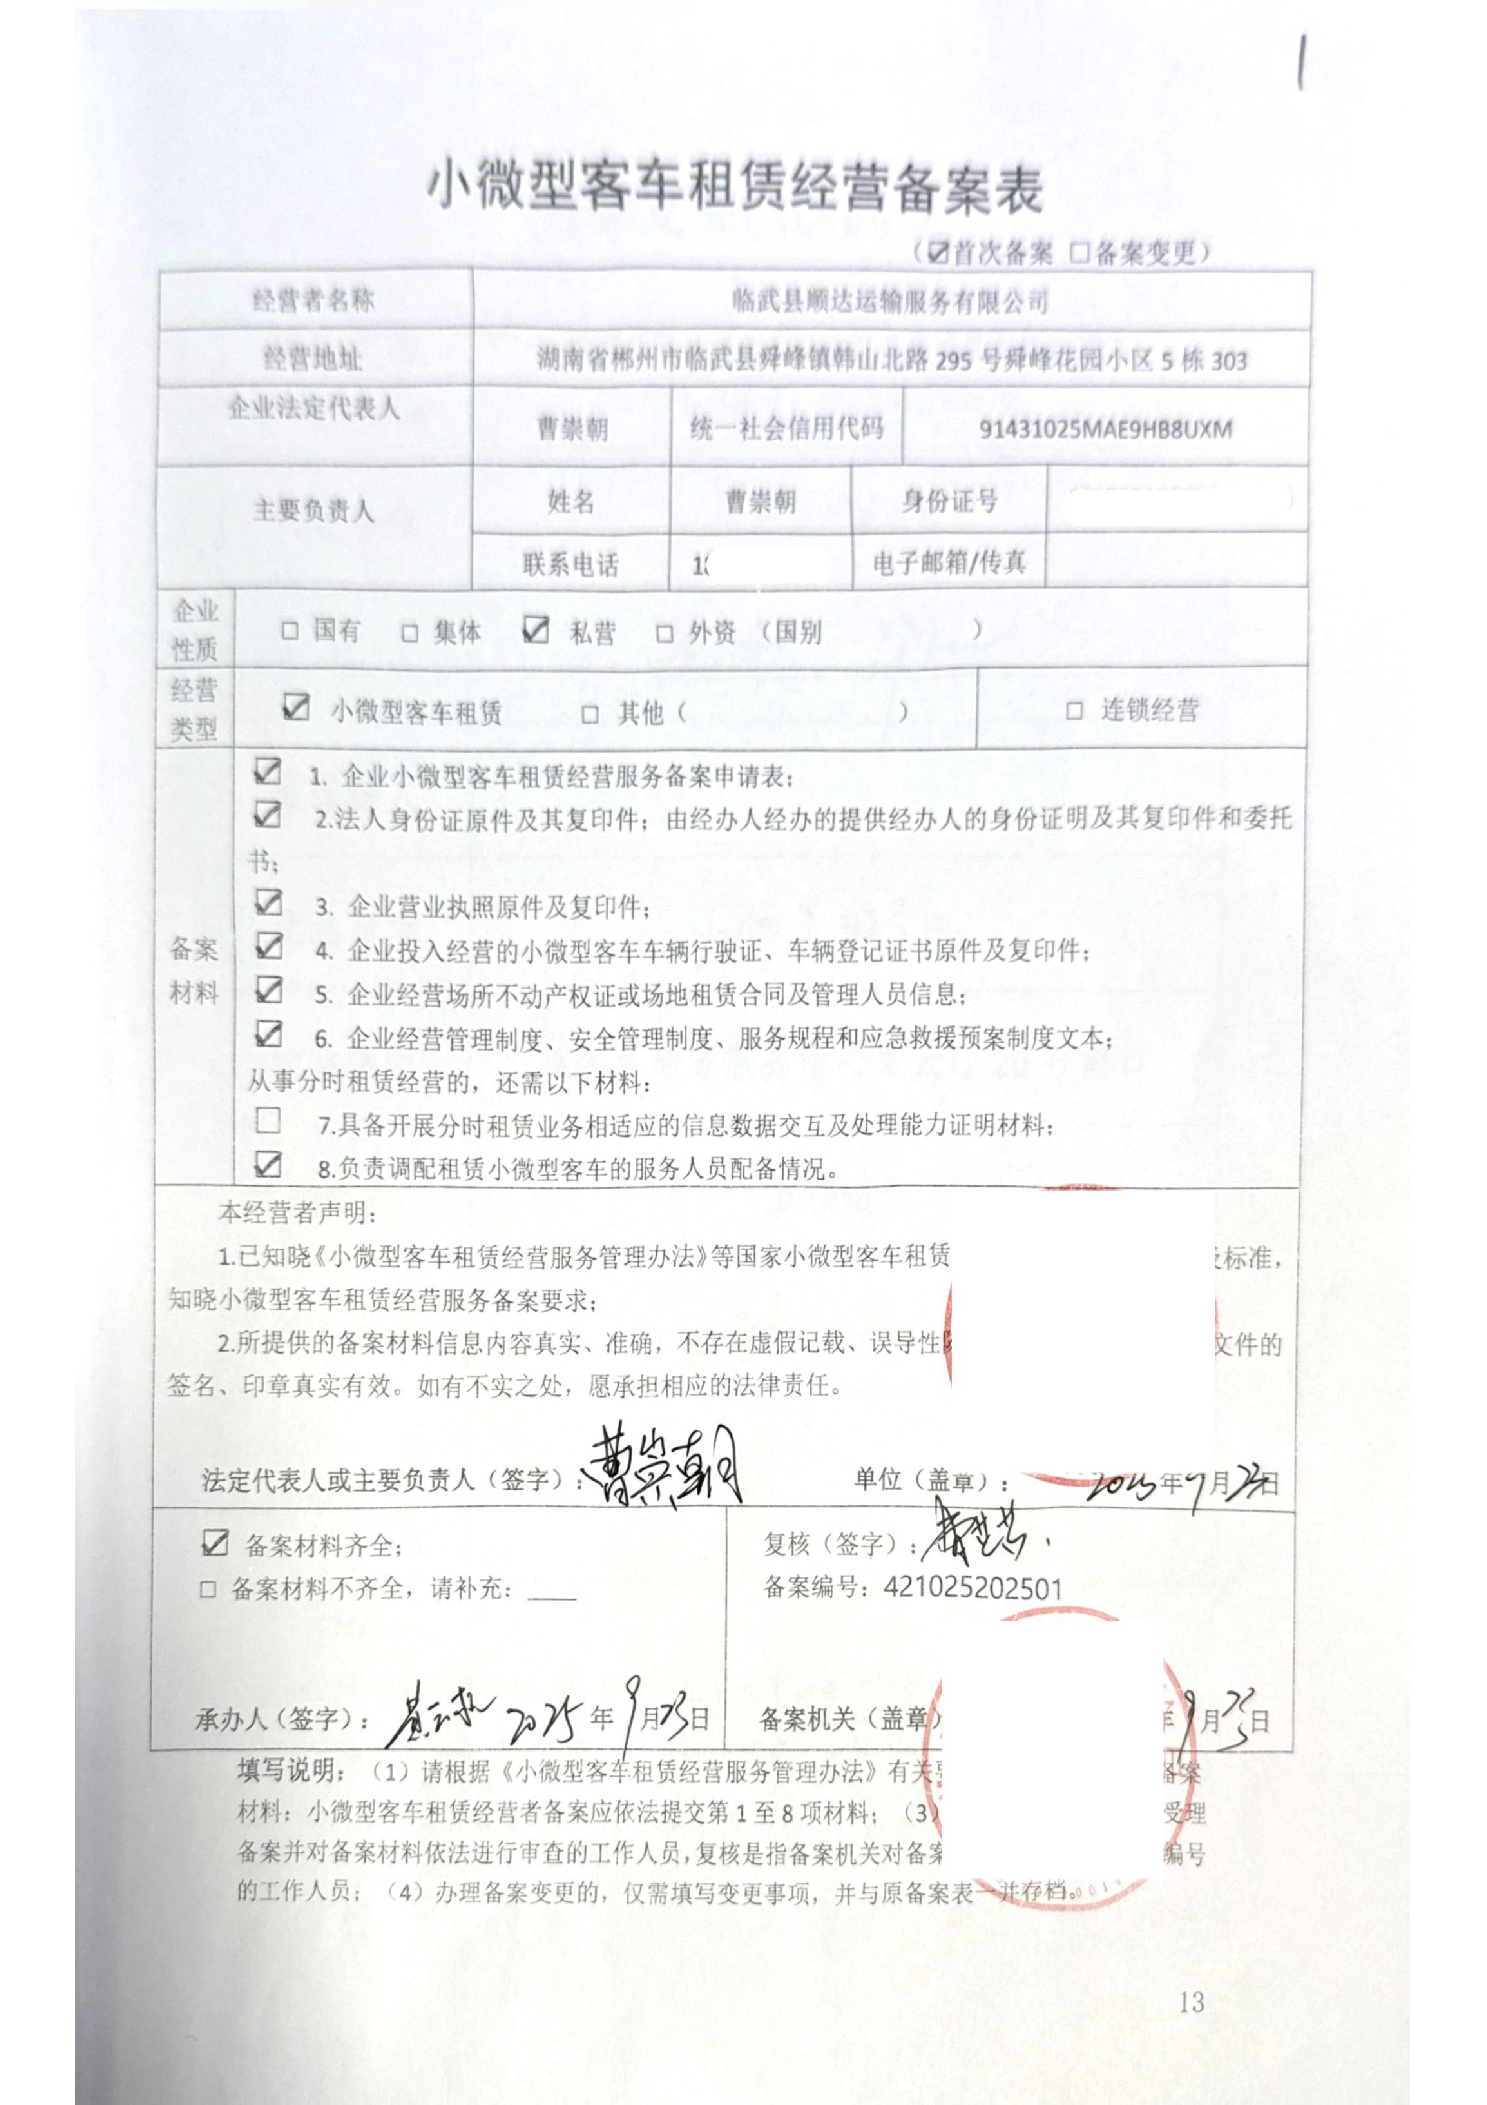 小微型客车租赁经营备案表
（☑首次备案 □备案变更）
经营者名称 临武县顺达运输服务有限公司
经营地址 湖南省郴州市临武县舜峰镇韩山北路 295 号舜峰花园小区 5 栋 303
企业法定代表人 曹崇朝 统一社会信用代码 91431025MAE9HB8UXM
主要负责人 姓名 曹崇朝 身份证号
联系电话 1 电子邮箱/传真
企业性质 □ 国有 □ 集体 ☑ 私营 □ 外资 （国别 ）
经营类型 ☑ 小微型客车租赁 □ 其他（ ） □ 连锁经营
备案材料
☑ 1. 企业小微型客车租赁经营服务备案申请表；
☑ 2.法人身份证原件及其复印件；由经办人经办的提供经办人的身份证明及其复印件和委托
书；
☑ 3. 企业营业执照原件及复印件；
☑ 4. 企业投入经营的小微型客车车辆行驶证、车辆登记证书原件及复印件；
☑ 5. 企业经营场所不动产权证或场地租赁合同及管理人员信息；
☑ 6. 企业经营管理制度、安全管理制度、服务规程和应急救援预案制度文本；
从事分时租赁经营的，还需以下材料：
□ 7.具备开展分时租赁业务相适应的信息数据交互及处理能力证明材料；
☑ 8.负责调配租赁小微型客车的服务人员配备情况。
本经营者声明：
1.已知晓《小微型客车租赁经营服务管理办法》等国家小微型客车租赁 标准，
知晓小微型客车租赁经营服务备案要求；
2.所提供的备案材料信息内容真实、准确，不存在虚假记载、误导性 文件的
签名、印章真实有效。如有不实之处，愿承担相应的法律责任。
法定代表人或主要负责人（签字）：曹崇朝 单位（盖章）： 年 月23日
☑ 备案材料齐全；
□ 备案材料不齐全，请补充：____
承办人（签字）： 2025年9月23日
复核（签字）：
备案编号：421025202501
备案机关（盖章） 年9月23日
填写说明：（1）请根据《小微型客车租赁经营服务管理办法》有关 备案
材料：小微型客车租赁经营者备案应依法提交第 1 至 8 项材料；（3） 受理
备案并对备案材料依法进行审查的工作人员，复核是指备案机关对备案 编号
的工作人员；（4）办理备案变更的，仅需填写变更事项，并与原备案表一并存档。
13